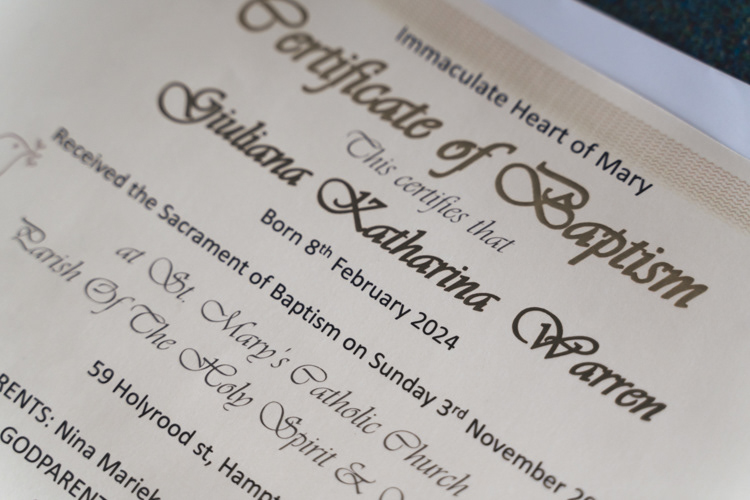 Immaculate Heart of Mary
Certificate of Baptism
This certifies that
Giuliana Katharina Warren
Born 8th February 2024
Received the Sacrament of Baptism on Sunday 3rd November
at St. Mary's Catholic Church
Parish Of The Holy Spirit &
59 Holyrood st,
Nina